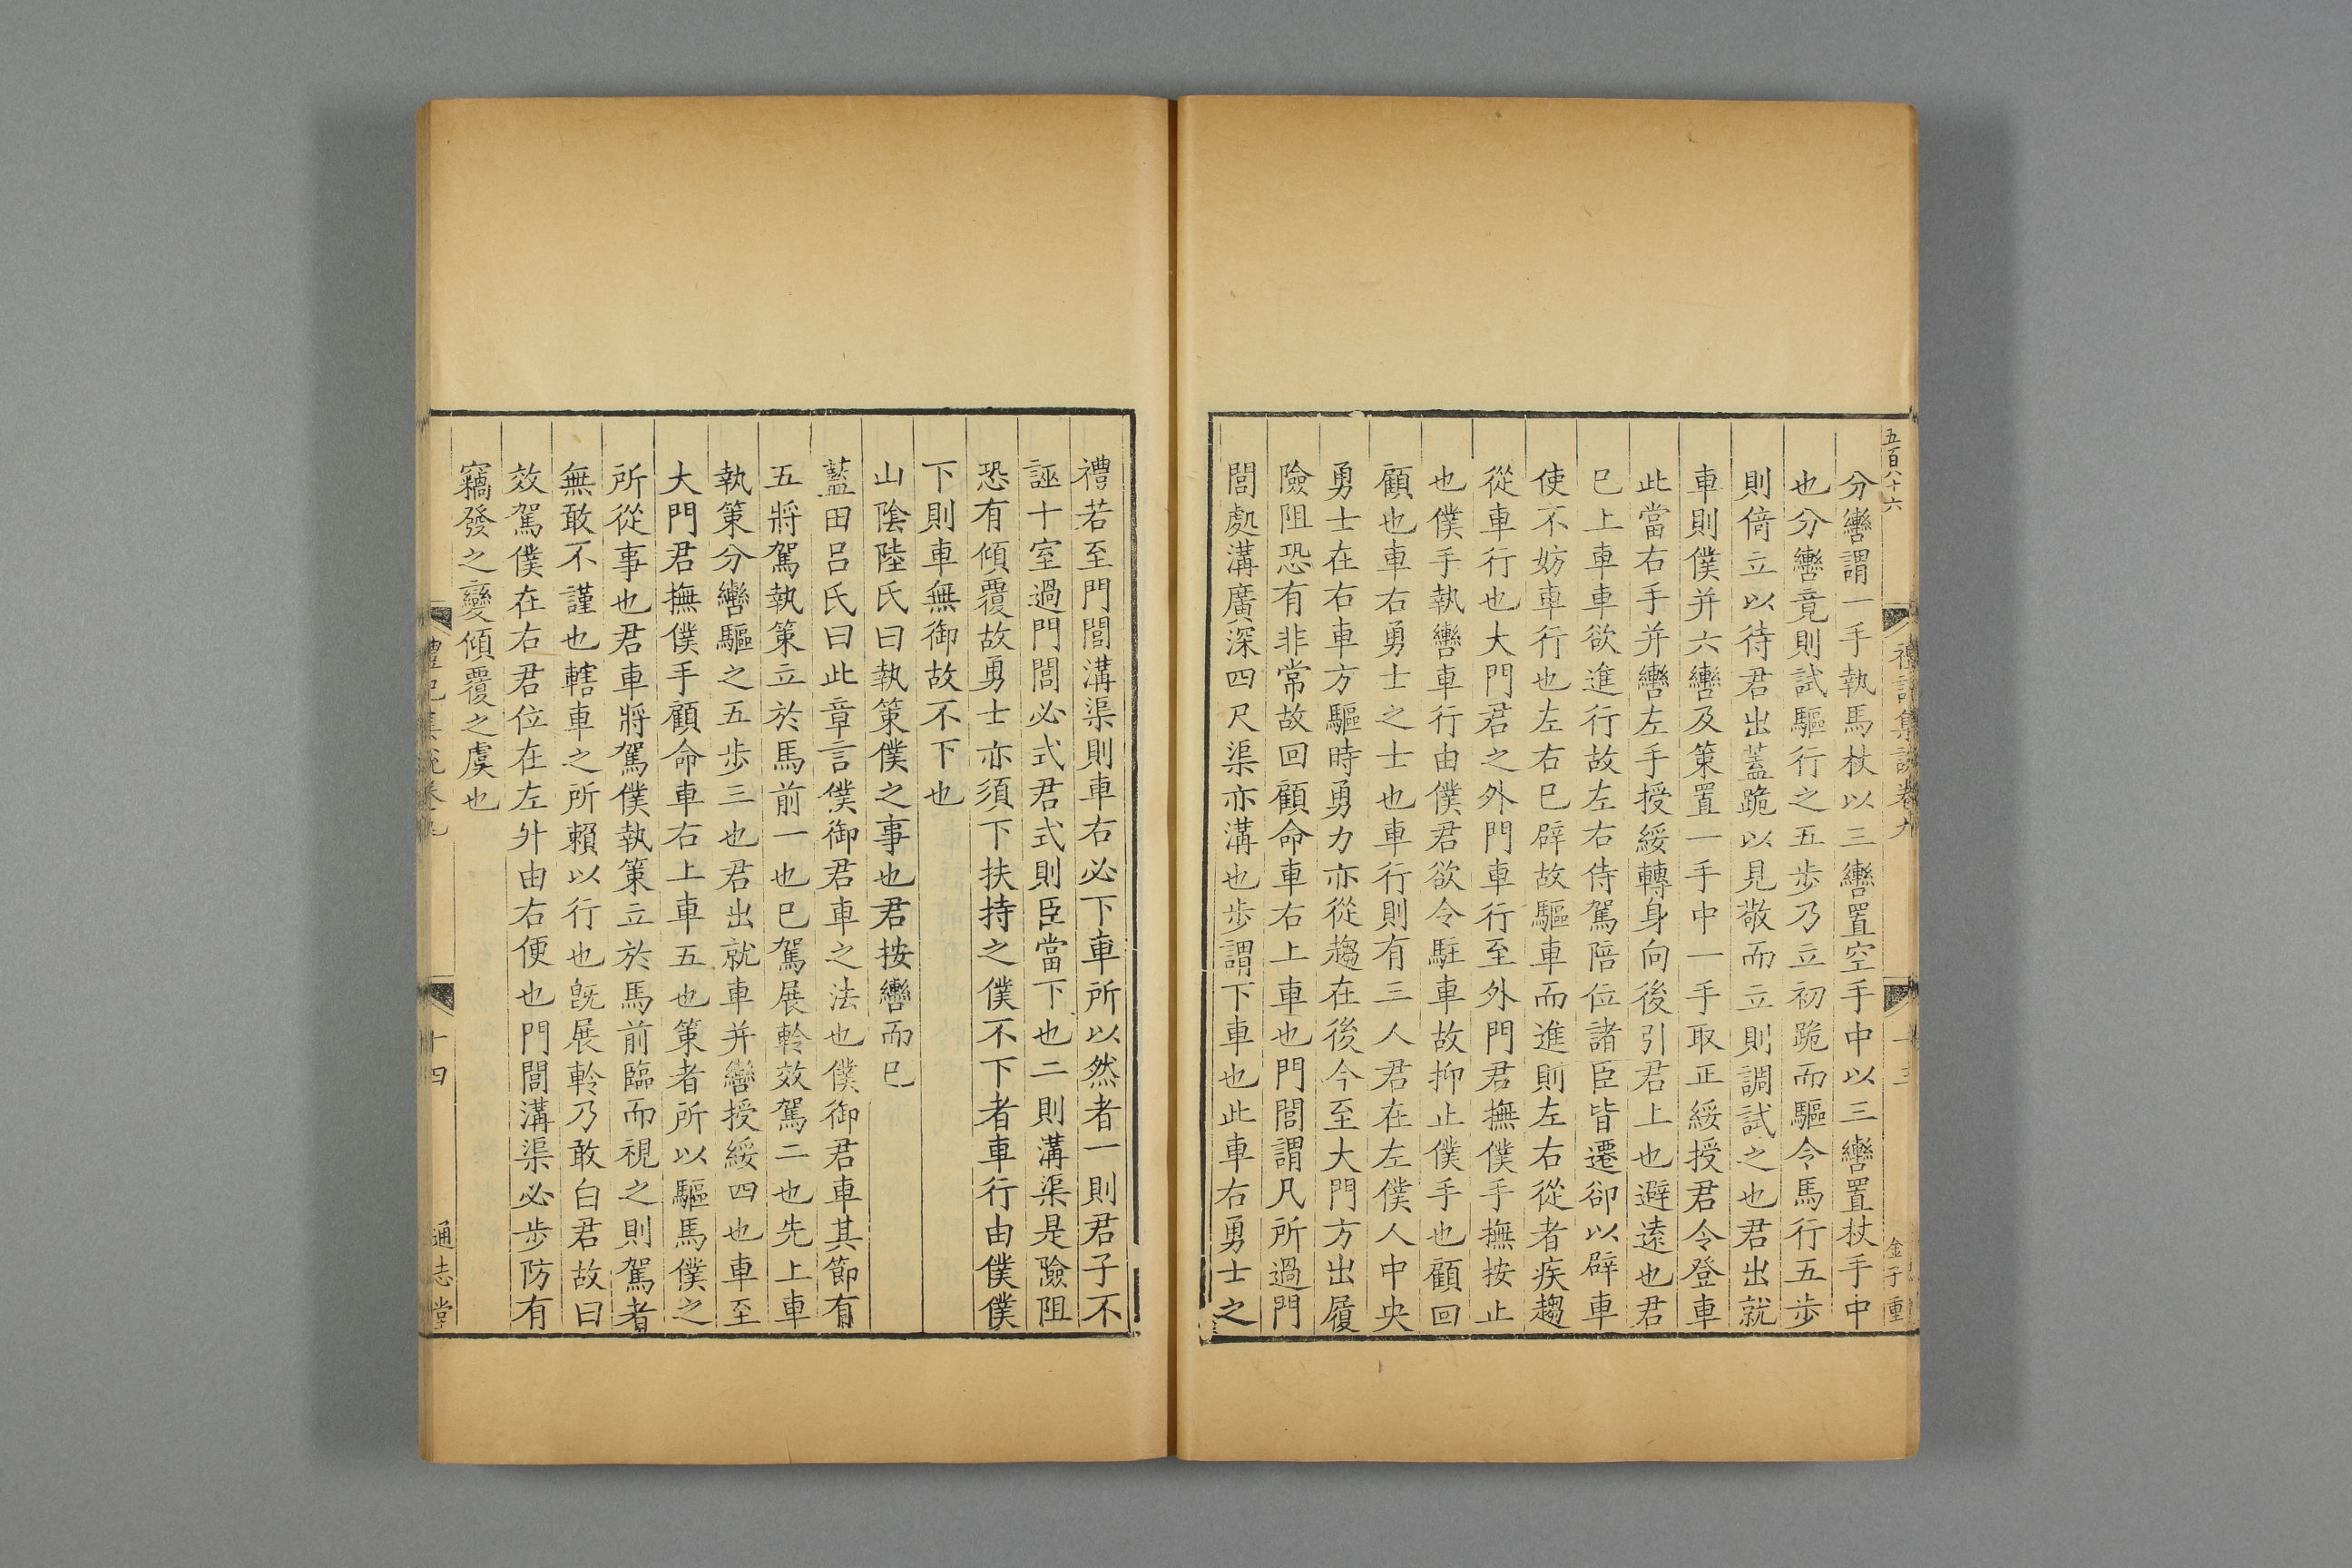 五百八十六
禮記集說卷九
金子重
分轡謂一手執馬杖以三轡置空手中以三轡置杖手中
也分轡竟則試驅行之五步乃立初跪而驅令馬行五步
則倚立以待君出蓋跪以見敬而立則調試之也君出就
車則僕并六轡及策置一手中一手取正綏授君令登車
此當右手并轡左手授綏轉身向後引君上也避遠也君
已上車車欲進行故左右侍駕陪位諸臣皆遷卻以辟車
使不妨車行也左右已辟故驅車而進則左右從者疾趨
從車行也大門君之外門車行至外門君撫僕手撫按止
也僕手執轡車行由僕君欲令駐車故抑止僕手也顧回
顧也車右勇士之士也車行則有三人君在左僕人中央
勇士在右車方驅時勇力亦從趨在後今至大門方出履
險阻恐有非常故回顧命車右上車也門閭謂凡所過門
閭處溝廣深四尺渠亦溝也步謂下車也此車右勇士之
禮若至門閭溝渠則車右必下車所以然者一則君子不
誣十室過門閭必式君式則臣當下也二則溝渠是險阻
恐有傾覆故勇士亦須下扶持之僕不下者車行由僕僕
下則車無御故不下也
山陰陸氏曰執策僕之事也君按轡而已
藍田呂氏曰此章言僕御君車之法也僕御君車其節有
五將駕執策立於馬前一也已駕展軨效駕二也先上車
執策分轡驅之五步三也君出就車并轡授綏四也車至
大門君撫僕手顧命車右上車五也策者所以驅馬僕之
所從事也君車將駕僕執策立於馬前臨而視之則駕者
無敢不謹也轄車之所賴以行也旣展軨乃敢白君故曰
效駕僕在右君位在左升由右便也門閭溝渠必步防有
竊發之變傾覆之虞也
禮記集說卷九
十四
通志堂